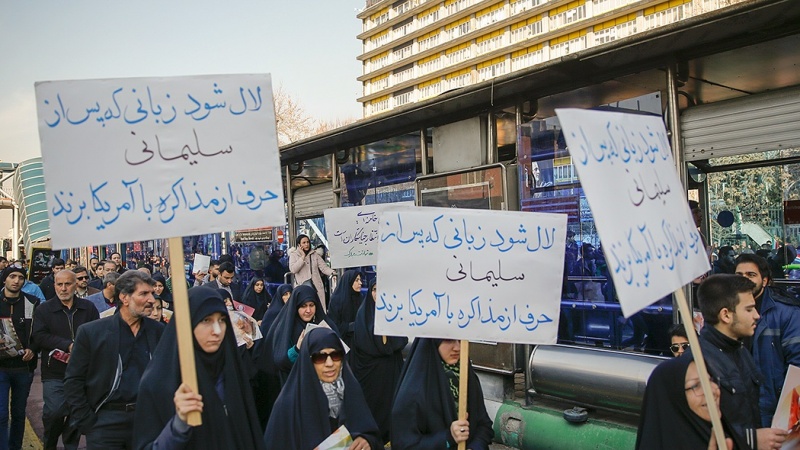 لال شود زبانی که پس از
سلیمانی
حرف از مذاکره با آمریکا بزند
لال شود زبانی که پس از
سلیمانی
حرف از مذاکره با آمریکا بزند
لال شود زبانی که پس از
سلیمانی
حرف از مذاکره با آمریکا بزند